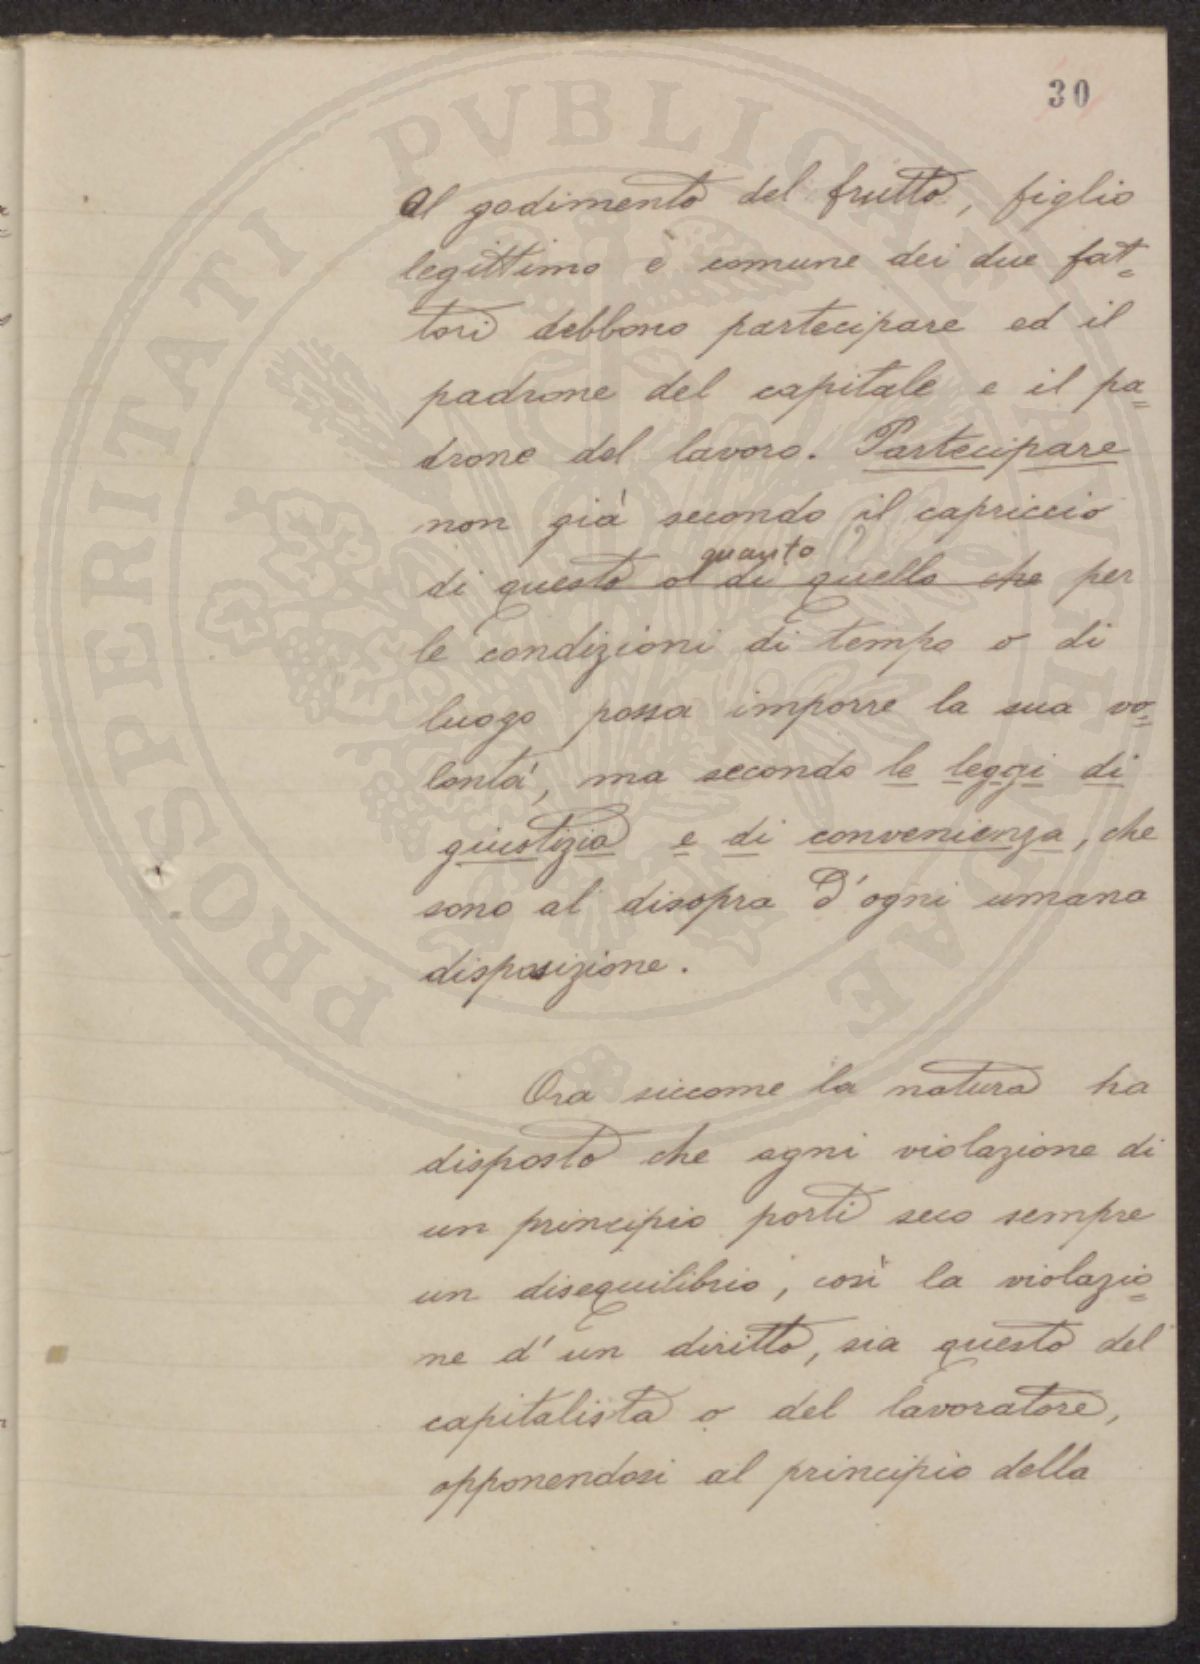 30
PROSPERITATI PVBLICAE AVGENDAE
al godimento del frutto, figlio
legittimo e comune dei due fat=
tori debbono partecipare ed il
padrone del capitale e il pa=
drone del lavoro. Partecipare
non già secondo il capriccio
quanto
di questo o di quello che per
le condizioni di tempo o di
luogo possa imporre la sua vo=
lontà, ma secondo le leggi di
giustizia e di convenienza, che
sono al disopra d'ogni umana
disposizione.
Ora siccome la natura ha
disposto che ogni violazione di
un principio porti seco sempre
un disequilibrio, così la violazio=
ne d'un diritto, sia questo del
capitalista o del lavoratore,
opponendosi al principio della